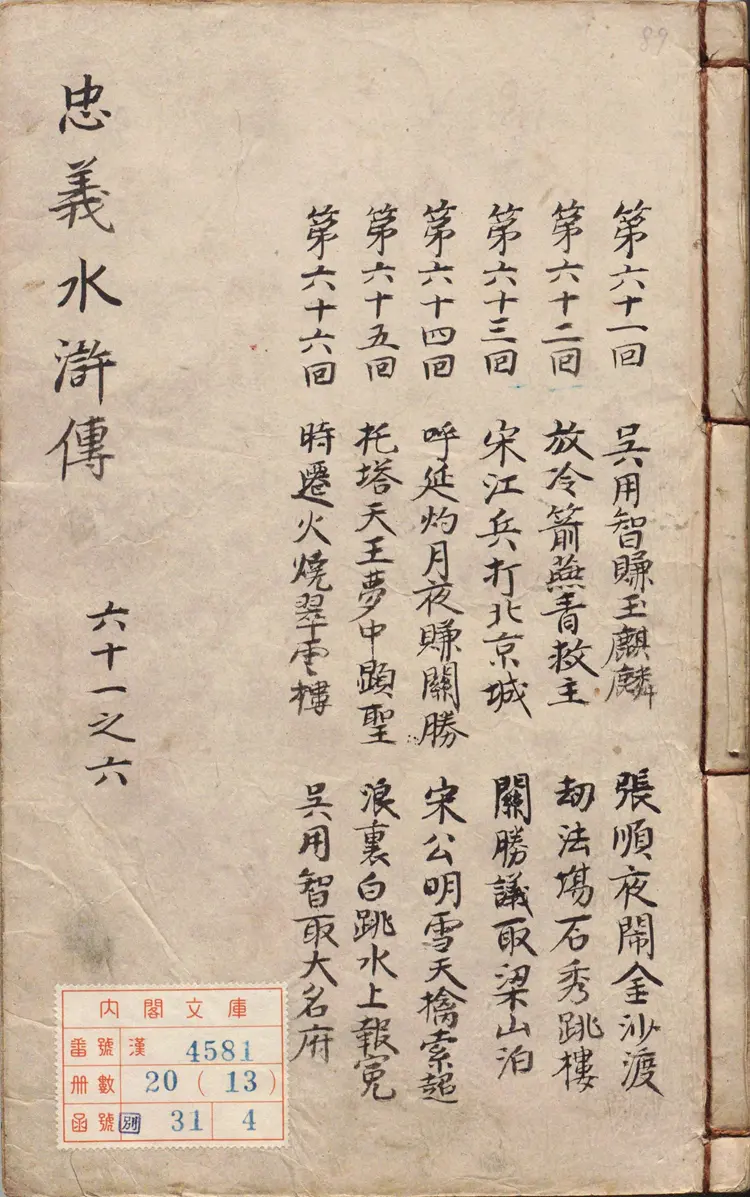 第六十一回 吴用智賺玉麒麟 張順夜鬧金沙渡
第六十二回 放冷箭燕青救主 劫法場石秀跳樓
第六十三回 宋江兵打北京城 關勝議取梁山泊
第六十四回 呼延灼月夜賺關勝 宋公明雪天擒索超
第六十五回 托塔天王夢中顕聖 浪裏白跳水上報冤
第六十六回 時遷火燒翠雲樓 吴用智取大名府
忠義水滸傳 六十一之六
89
内閣文庫
番號 漢 4581
册數 20 (13)
函號 別 31 4